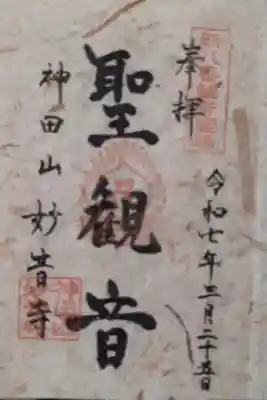 奉拝
令和七年三月二十五日
聖観音
神田山妙音寺